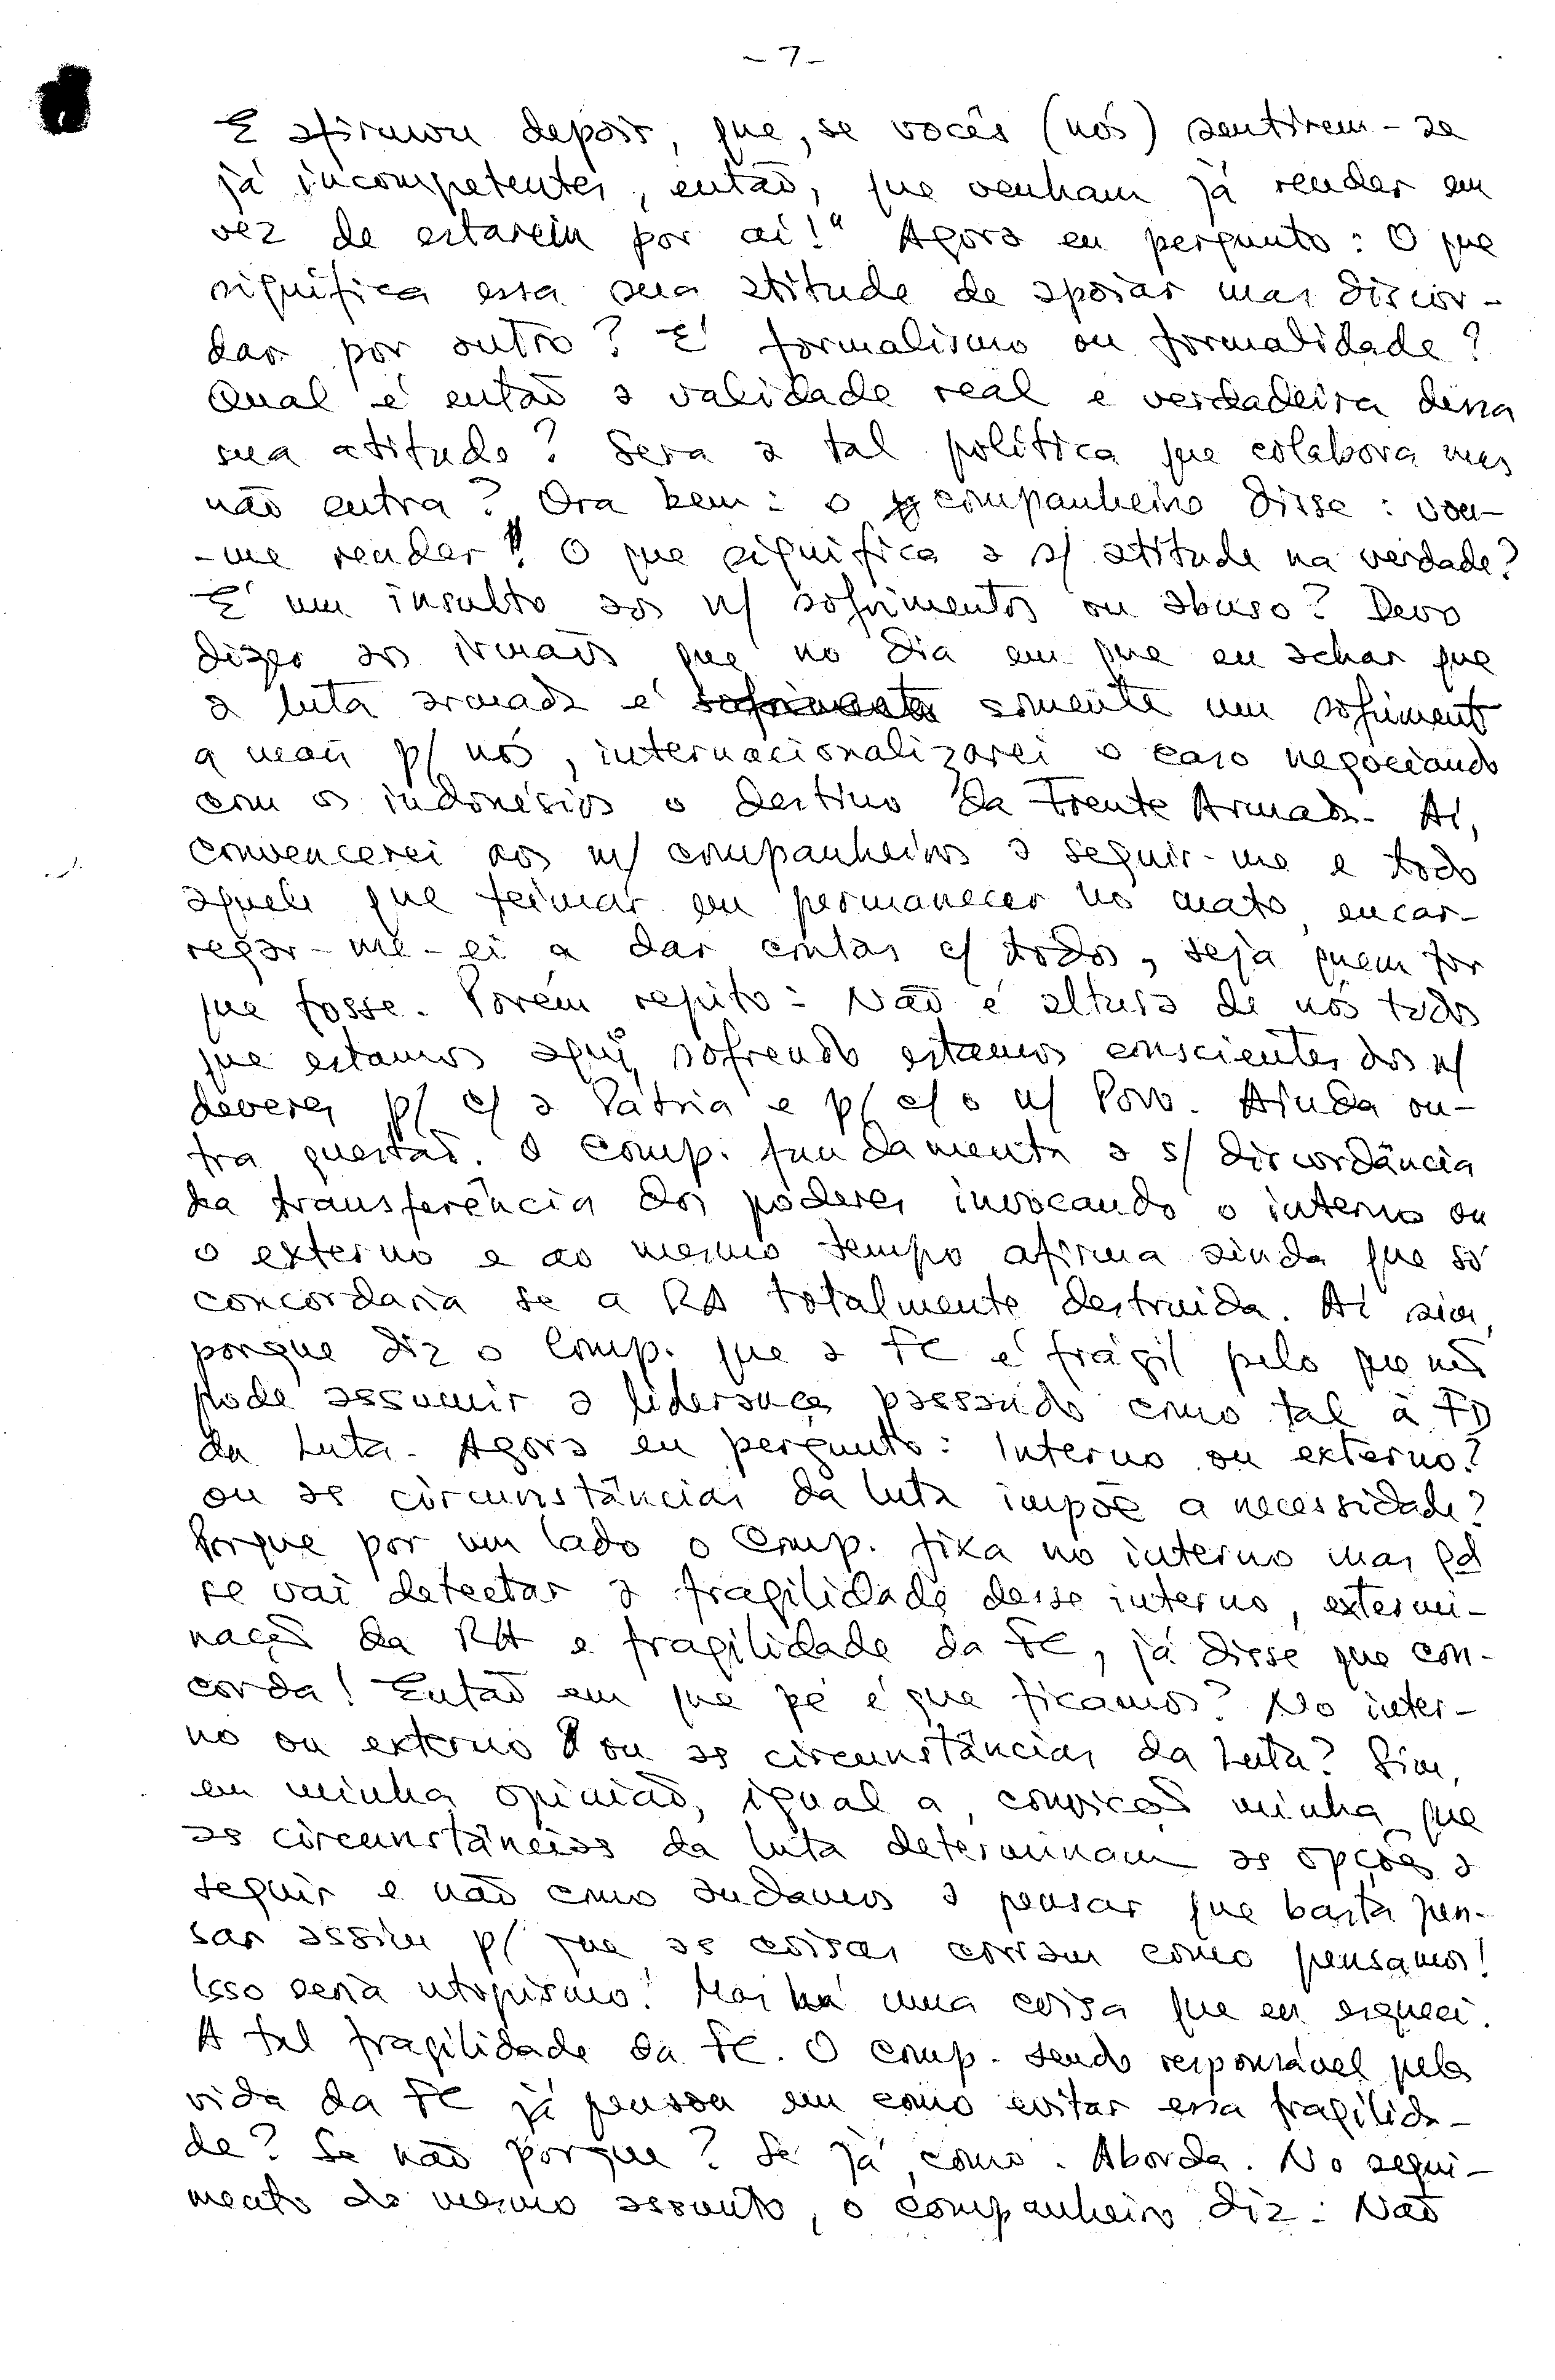 - 7 -
E afirmou depois, que, se vocês (nós) sentirem-se
já incompetentes, então, que venham já render em
vez de estarem por aí!" Agora eu pergunto: O que
significa essa sua atitude de apoiar mas discor-
dar por outro? É formalismo ou formalidade?
Qual é então a validade real e verdadeira dessa
sua atitude? Sera a tal política que colabora mas
não entra? Ora bem: o companheiro disse: vou-
-me render! O que significa a s/ atitude na verdade?
É um insulto aos n/ sofrimentos ou abuso? Devo
dizer aos irmãos que no dia em que eu achar que
a luta armada é somente um sofrimento
a mais p/ nós, internacionalizarei o caso negociando
com os indonésios o destino da Frente Armada. Aí,
convencerei aos m/ companheiros a seguir-me e todo
aquele que teimar em permanecer no mato, encar-
regar-me-ei a dar contas c/ todos, seja quem for
que fosse. Porém repito: Não é altura de nós todos
que estamos aqui sofrendo estamos conscientes dos n/
deveres p/ c/ a Pátria e p/ c/ o n/ Povo. Ainda ou-
tra questão. O comp. fundamenta a s/ discordância
da transferência dos poderes invocando o interno ou
o externo e ao mesmo tempo afirma ainda que só
concordaria se a RA totalmente destruida. Aí sim,
porque diz o Comp. que a FC é frágil pelo que não
pode assumir a liderança passando como tal à FD
da Luta. Agora eu pergunto: Interno ou externo?
ou as circunstâncias da luta impõe a necessidade?
Porque por um lado o Comp. fixa no interno mas
se vai detectar a fragilidade desse interno, extermi-
nação da RA e fragilidade da FC, já disse que con-
corda! Então em que pé é que ficamos? No inter-
no ou externo ou as circunstâncias da Luta? Sim,
em minha opinião, igual a convicção minha que
as circunstâncias da luta determinam as opções a
seguir e não como andamos a pensar que basta pen-
sar assim p/ que as coisas corram como pensamos!
Isso seria utopismo! Mas há uma coisa que eu esqueci.
A tal fragilidade da FC. O comp. sendo responsável pela
vida da FC já pensou em como evitar essa fragilida-
de? Se não porque? Se já, como. Aborda. No segui-
mento do mesmo assunto, o companheiro diz: Não